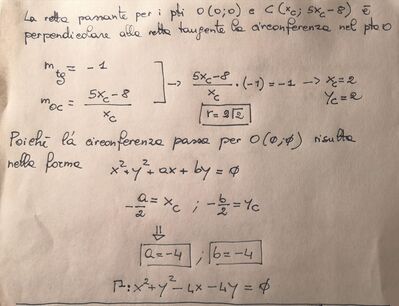 La retta passante per i pti O(0;0) e C(x_C; 5x_C-8) è
perpendicolare alla retta tangente la circonferenza nel pto O
m_tg = -1
m_OC = (5x_C-8)/x_C
→ (5x_C-8)/x_C · (-1) = -1 → x_C=2
y_C=2
r=2√2
Poichè la circonferenza passa per O(0;0) risulta
nella forma x²+y²+ax+by=0
-a/2 = x_C ; -b/2 = y_C
⇓
a=-4 ; b=-4
Γ: x²+y²-4x-4y=0